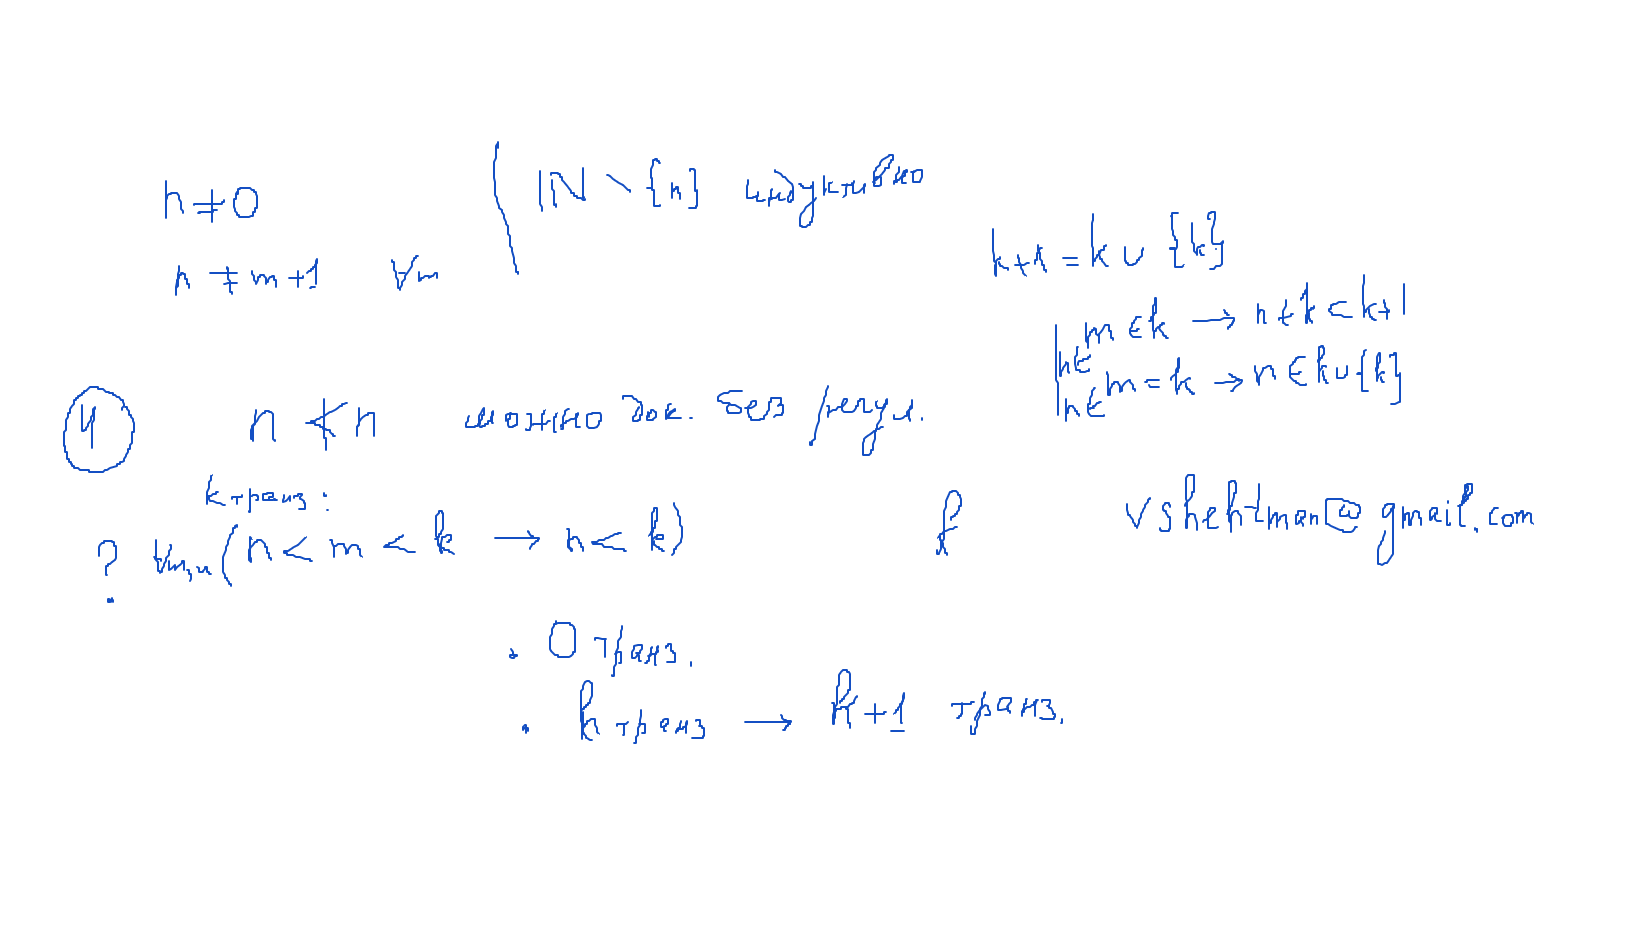 n ≠ 0
n ≠ m+1 ∀m
ℕ \ {n} индуктивно
k+1 = k ∪ {k}
n∈ m∈k → n∈k⊂k+1
n∈ m=k → n∈k∪{k}
4 n ≮ n можно док. без регул.
k транз:
? ∀m,n (n < m < k → n < k)
f
vshehtman@gmail.com
. 0 транз.
. k транз → k+1 транз.